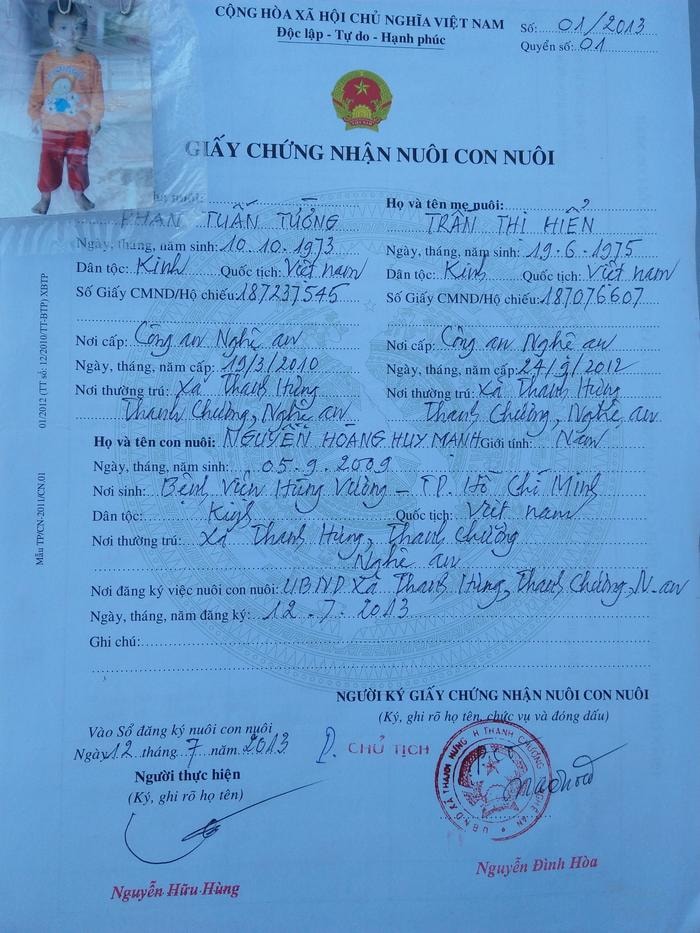 CỘNG HÒA XÃ HỘI CHỦ NGHĨA VIỆT NAM
Độc lập - Tự do - Hạnh phúc
Số: 01/2013
Quyển số: 01
GIẤY CHỨNG NHẬN NUÔI CON NUÔI
PHAN TUẤN TƯỞNG
Ngày, tháng, năm sinh: 10.10.1973
Dân tộc: Kinh Quốc tịch: Việt nam
Số Giấy CMND/Hộ chiếu: 187237545
Nơi cấp: Công an Nghệ an
Ngày, tháng, năm cấp: 19/3/2010
Nơi thường trú: Xã Thanh Hưng
Thanh Chương, Nghệ an
Họ và tên mẹ nuôi:
TRẦN THỊ HIỂN
Ngày, tháng, năm sinh: 19.6.1975
Dân tộc: Kinh Quốc tịch: Việt nam
Số Giấy CMND/Hộ chiếu: 187076607
Nơi cấp: Công an Nghệ an
Ngày, tháng, năm cấp: 24/9/2012
Nơi thường trú: Xã Thanh Hưng
Thanh Chương, Nghệ an
Họ và tên con nuôi: NGUYỄN HOÀNG HUY MẠNH Giới tính: Nam
Ngày, tháng, năm sinh: 05.9.2009
Nơi sinh: Bệnh Viện Hùng Vương - TP. Hồ Chí Minh
Dân tộc: Kinh Quốc tịch: Việt nam
Nơi thường trú: Xã Thanh Hưng, Thanh Chương
Nghệ an
Nơi đăng ký việc nuôi con nuôi: UBND Xã Thanh Hưng, Thanh Chương, N.an
Ngày, tháng, năm đăng ký: 12.7.2013
Ghi chú:
NGƯỜI KÝ GIẤY CHỨNG NHẬN NUÔI CON NUÔI
(Ký, ghi rõ họ tên, chức vụ và đóng dấu)
Vào Sổ đăng ký nuôi con nuôi
Ngày 12 tháng 7 năm 2013
Người thực hiện
(Ký, ghi rõ họ tên)
Nguyễn Hữu Hùng
P. CHỦ TỊCH
U.B.N.D XÃ THANH HƯNG H THANH CHƯƠNG NGHỆ AN
Nguyễn Đình Hòa
Mẫu TP/CN-2011/CN.01
01/2012 (TT số: 12/2010/TT-BTP) XBTP